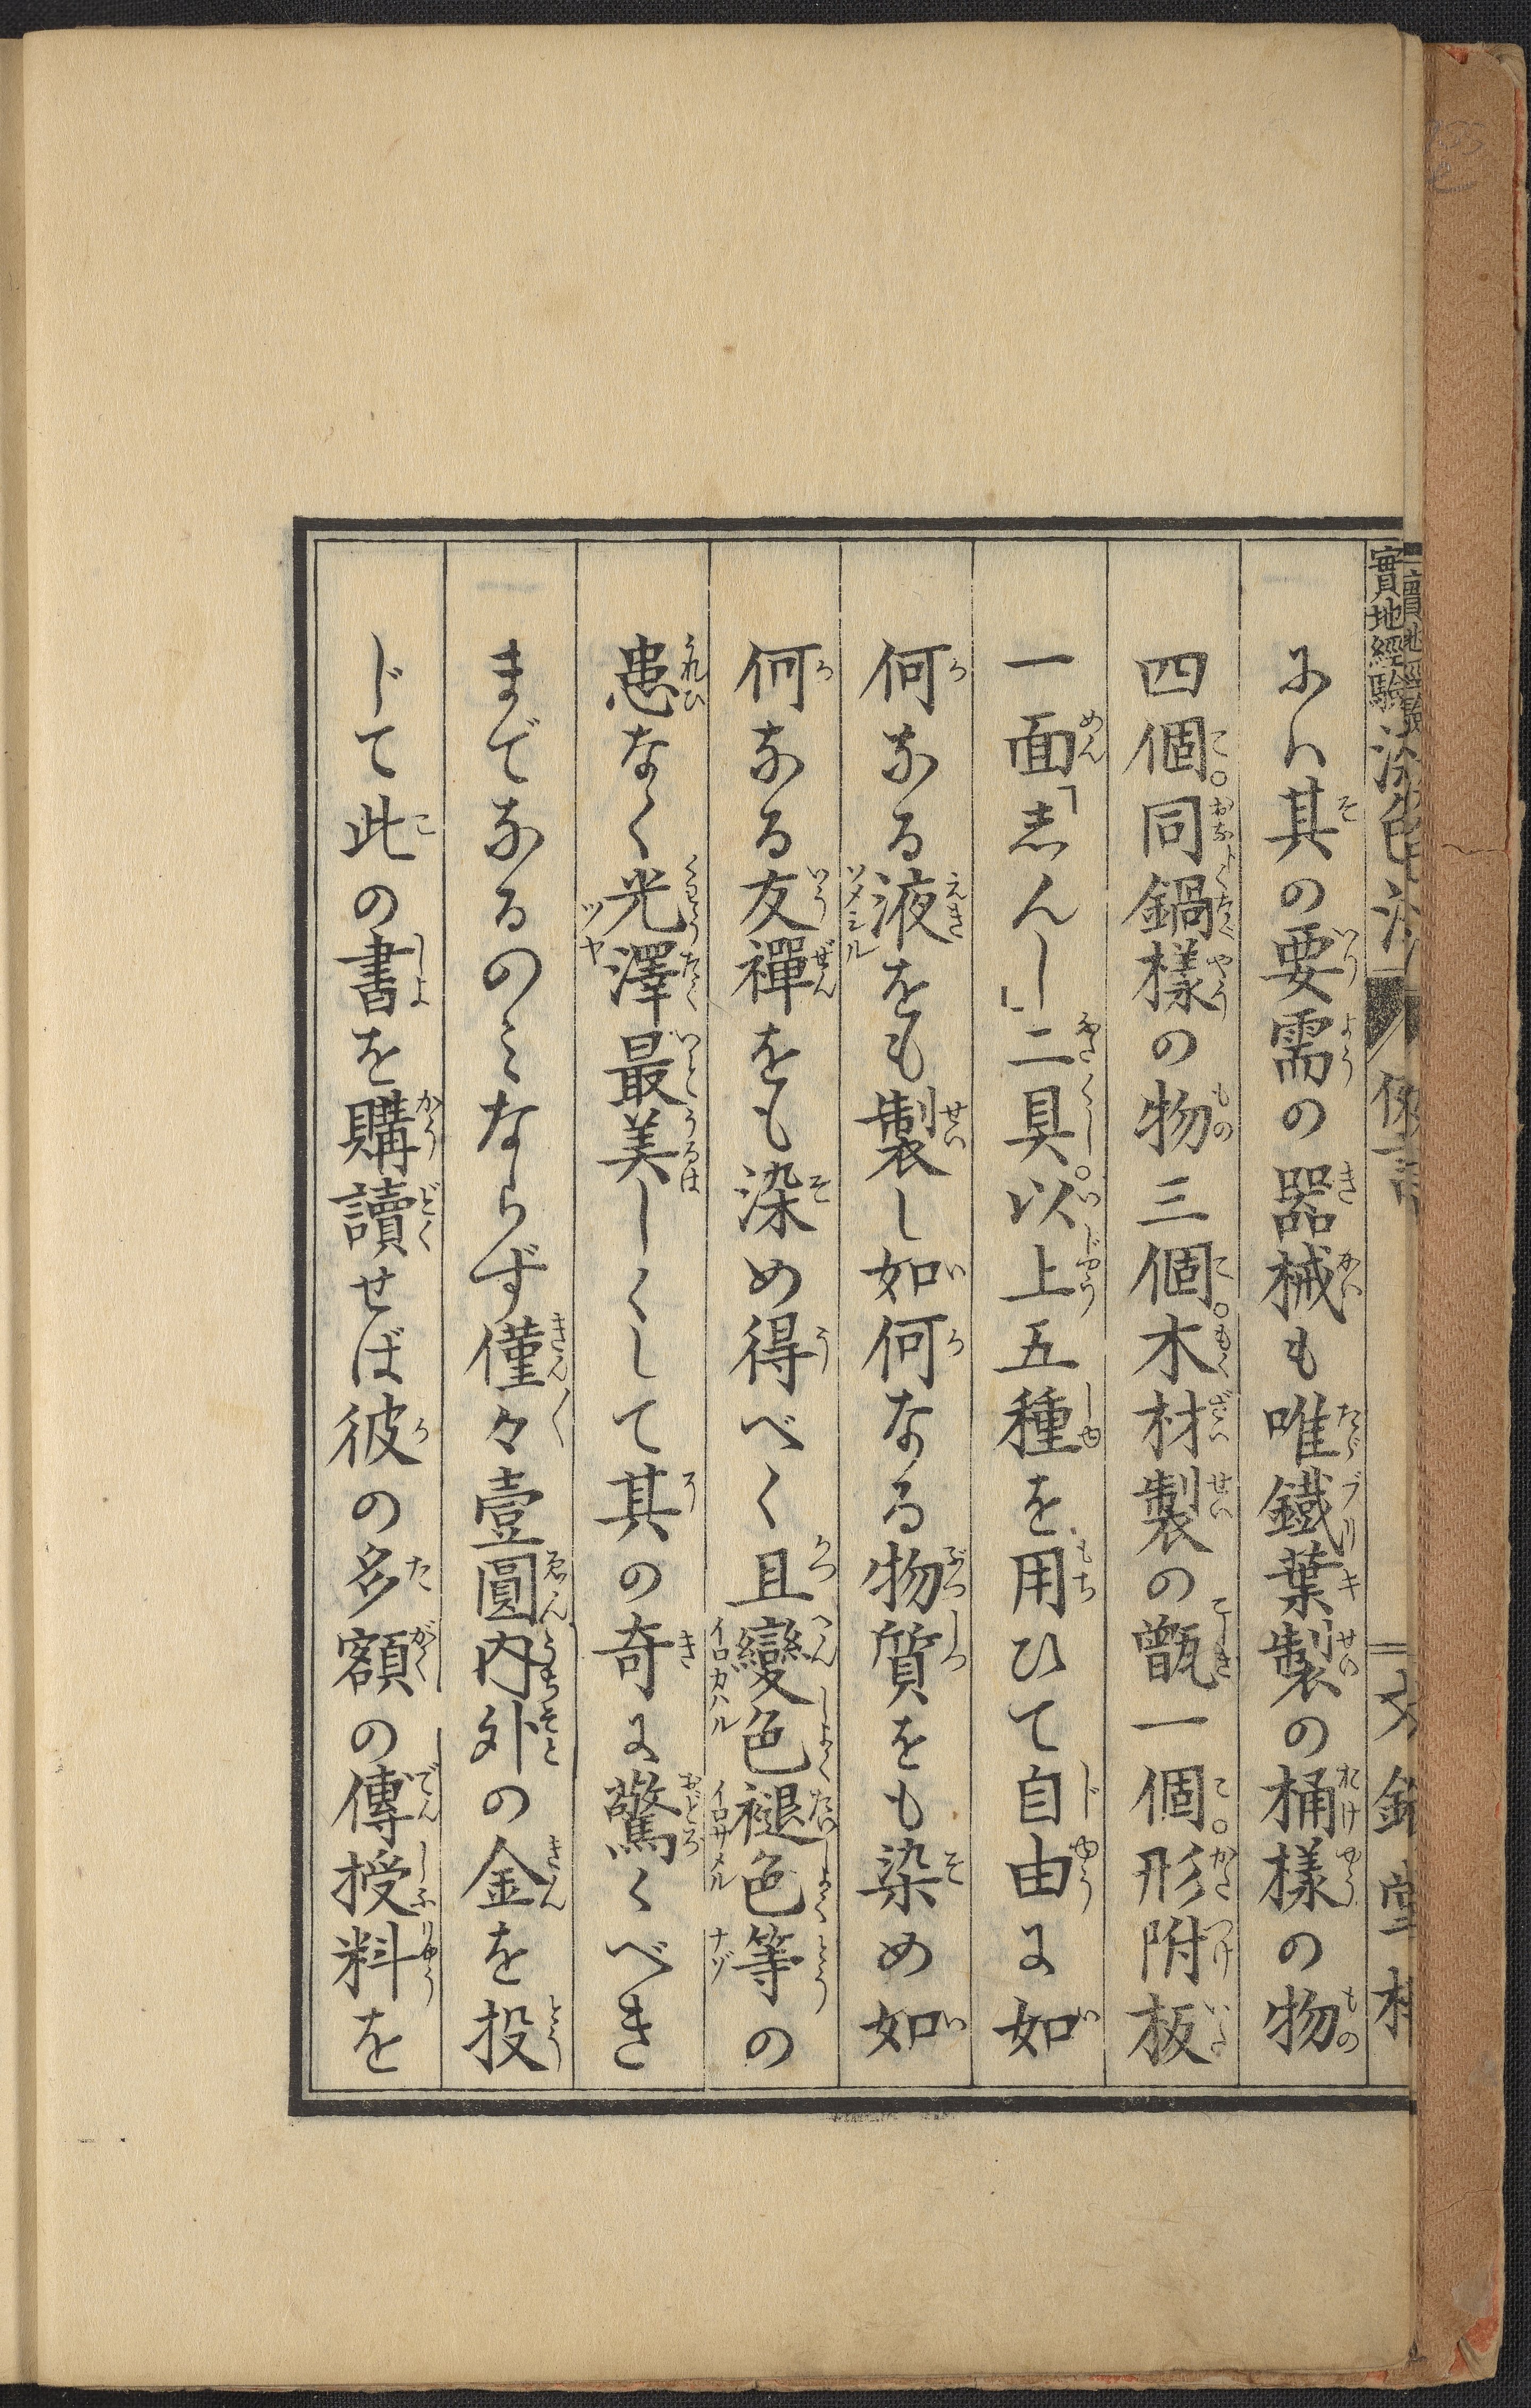 實地經驗
あハ其の要需の器械も唯鐵葉製の桶樣の物
四個。同鍋樣の物三個。木材製の甑一個。形附板
一面「志んし」二具。以上五種を用ひて自由に如
何なる液をも製し如何なる物質をも染め如
何なる友禪をも染め得べく且變色褪色等の
患なく光澤最美しくして其の奇に驚くべき
までなるのミならず僅々壹圓內外の金を投
じて此の書を購讀せば彼の多額の傳授料を